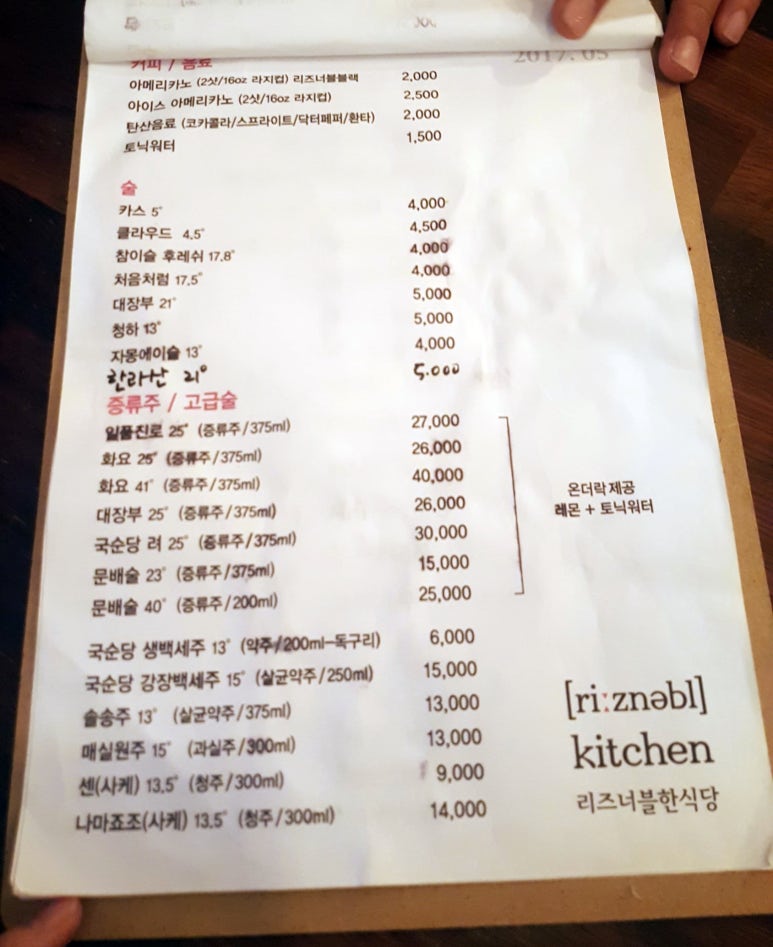 2017. 05
커피 / 음료
아메리카노 (2샷/16oz 라지컵) 리즈너블블랙 2,000
아이스 아메리카노 (2샷/16oz 라지컵) 2,500
탄산음료 (코카콜라/스프라이트/닥터페퍼/환타) 2,000
토닉워터 1,500
술
카스 5° 4,000
클라우드 4.5° 4,500
참이슬 후레쉬 17.8° 4,000
처음처럼 17.5° 4,000
대장부 21° 5,000
청하 13° 5,000
자몽에이슬 13° 4,000
한라산 21° 5.000
증류주 / 고급술
일품진로 25° (증류주/375ml) 27,000
화요 25° (증류주/375ml) 26,000
화요 41° (증류주/375ml) 40,000
대장부 25° (증류주/375ml) 26,000
국순당 려 25° (증류주/375ml) 30,000
문배술 23° (증류주/375ml) 15,000
문배술 40° (증류주/200ml) 25,000
온더락 제공
레몬 + 토닉워터
국순당 생백세주 13° (약주/200ml-독구리) 6,000
국순당 강장백세주 15° (살균약주/250ml) 15,000
솔송주 13° (살균약주/375ml) 13,000
매실원주 15° (과실주/300ml) 13,000
센(사케) 13.5° (청주/300ml) 9,000
나마죠조(사케) 13.5° (청주/300ml) 14,000
[ri:znəbl]
kitchen
리즈너블한식당